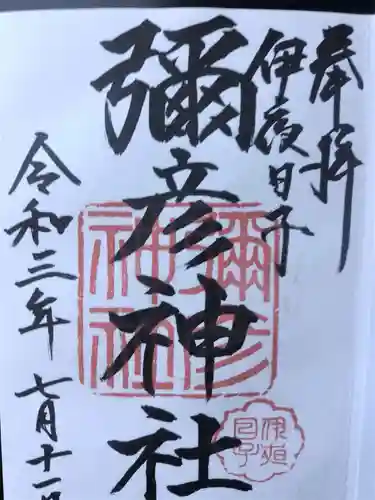 奉拝
伊夜日子
彌彦神社
令和三年 七月十一日
彌彦
神社